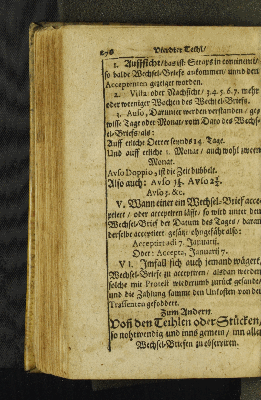 276 Vierdter Theil/
1. Auffsicht/ das ist: Straps in continenti/
so balde Wechsel-Briefe ankommen/ unnd den
Acceptenten gezeiget worden.
2. Vista oder Nachsicht/ 3.4.5.6.7. mehr
oder weeniger Wochen des Wechsel-Briefs.
3. Auso, Darunter werden verstanden/ ge-
wisse Tage oder Monat/ vom Dato des Wechs-
sel-Briefs/ als:
Auff etliche Oerter seunds 14. Tage.
Und auff etliche 1. Monat/ auch wohl zween
Monat.
Auso Doppio, ist die Zeit dubbelt.
Also auch: Auso 1½. Auso 2½.
Auso 3. &c.
V. Wann einer ein Wechsel-Brief acce-
ptiert/ oder acceptiren läßt/ so wird unter den
Wechsel-Brief der Datum des Tages/ daran
derselbe acceptiert gesätzt ohngefähr also:
Acceptirt adi 7. Januarij.
Oder: Accepto, Januarij 7.
VI. Imfall sich auch jemand wägert,
Wechsel-Briefe zu acceptiren/ alsdan werden
solche mit Protest wiederumb zurück gesandt/
und die Zahlung sammt den Unkosten von dem
Trassenten gefoddert.
Zum Andern.
Von den Teihlen oder Stücken/
so nohtwendig und inns gemein/ inn allen
Wechsel-Briefen zu observiren.